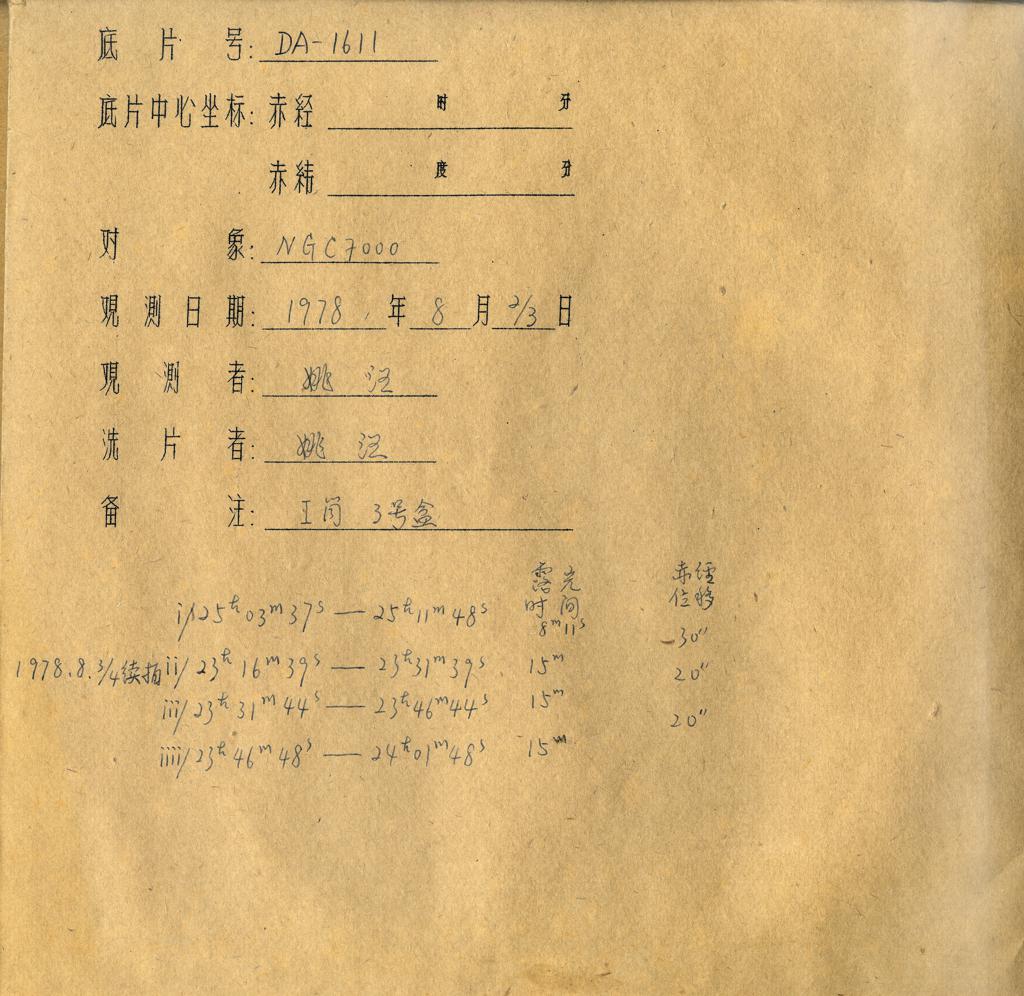 底片号: DA-1611
底片中心坐标: 赤经 时 分
赤纬 度 分
对象: NGC7000
观测日期: 1978. 年 8 月 2/3 日
观测者: 姚
洗片者: 姚
备注: 3号盒
露光 赤经
时间 位移
i/25h03m37s — 25h11m48s 8m11s
-30"
1978.8.3/4续拍 ii/23h16m39s — 23h31m39s 15m
20"
iii/23h31m44s — 23h46m44s 15m
20"
iiii/23h46m48s — 24h01m48s 15m